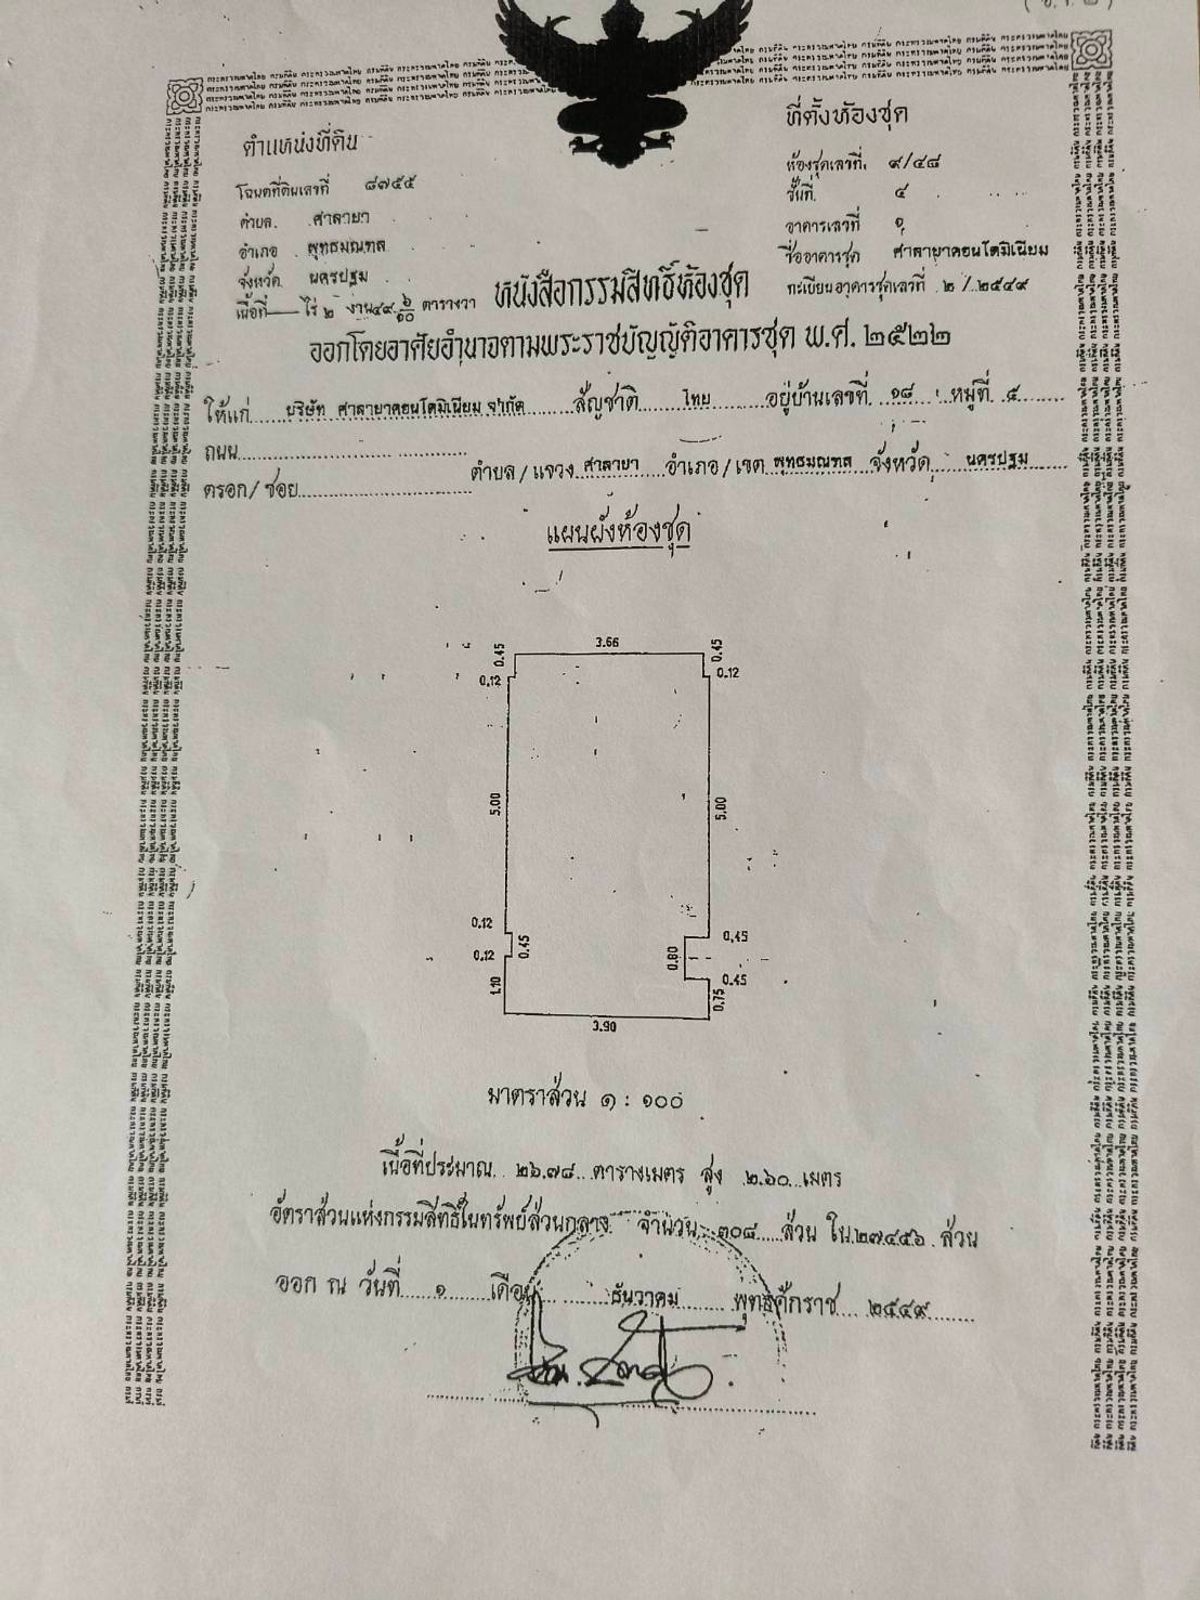 (อ.ช.๒)
ตำแหน่งที่ดิน
โฉนดที่ดินเลขที่ ๘๗๕๕
ตำบล ศาลายา
อำเภอ พุทธมณฑล
จังหวัด นครปฐม
เนื้อที่ — ไร่ ๒ งาน ๔๙ ๖/๑๐ ตารางวา
ที่ตั้งห้องชุด
ห้องชุดเลขที่ ๙/๔๘
ชั้นที่ ๔
อาคารเลขที่ ๑
ชื่ออาคารชุด ศาลายาคอนโดมิเนียม
ทะเบียนอาคารชุดเลขที่ ๒/๒๕๔๙
หนังสือกรรมสิทธิ์ห้องชุด
ออกโดยอาศัยอำนาจตามพระราชบัญญัติอาคารชุด พ.ศ. ๒๕๒๒
ให้แก่ บริษัท ศาลายาคอนโดมิเนียม จำกัด สัญชาติ ไทย อยู่บ้านเลขที่ ๑๘ หมู่ที่ ๕
ถนน
ตรอก/ซอย ตำบล/แขวง ศาลายา อำเภอ/เขต พุทธมณฑล จังหวัด นครปฐม
แผนผังห้องชุด
3.66
0.45 0.45
0.12 0.12
5.00 5.00
0.12 0.45
0.45 0.80
0.12 0.45
1.10 0.75
3.90
มาตราส่วน ๑ : ๑๐๐
เนื้อที่ประมาณ ๒๖.๗๘ ตารางเมตร สูง ๒.๖๐ เมตร
อัตราส่วนแห่งกรรมสิทธิ์ในทรัพย์ส่วนกลาง จำนวน ๓๐๘ ส่วน ใน ๒๗๔๕๖ ส่วน
ออก ณ วันที่ ๑ เดือน ธันวาคม พุทธศักราช ๒๕๔๙